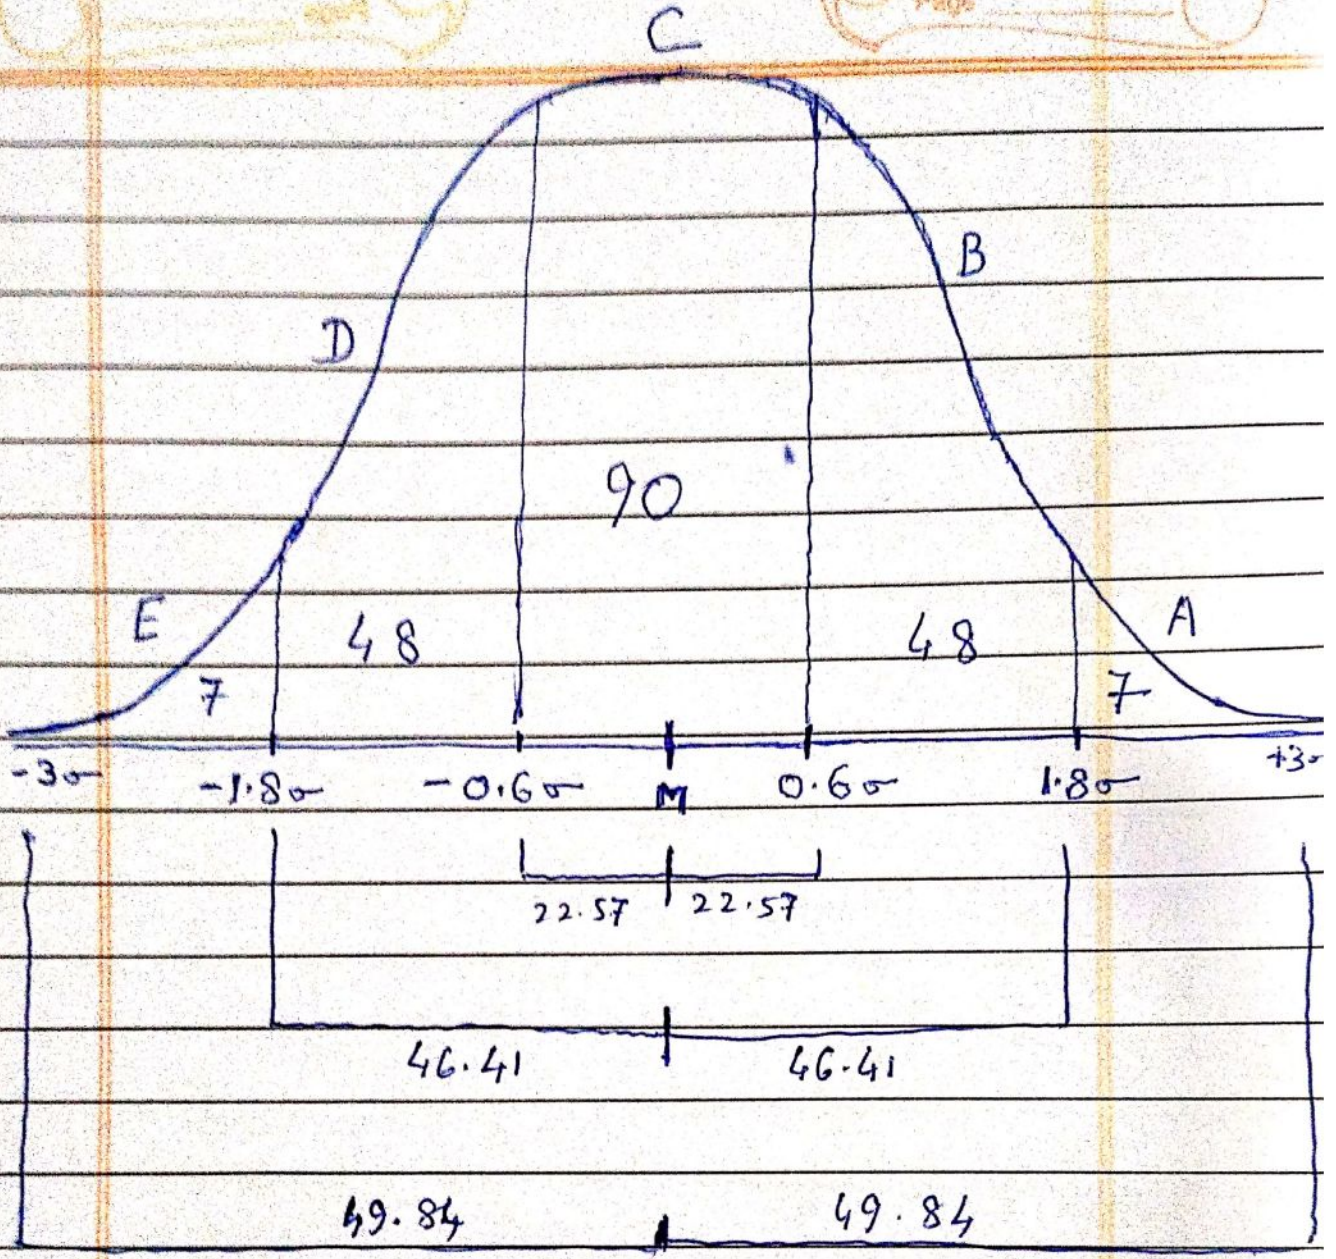 C
B
D
90
E 48 48 A
7 7
-3σ -1.8σ -0.6σ M 0.6σ 1.8σ +3σ
22.57 22.57
46.41 46.41
49.84 49.84